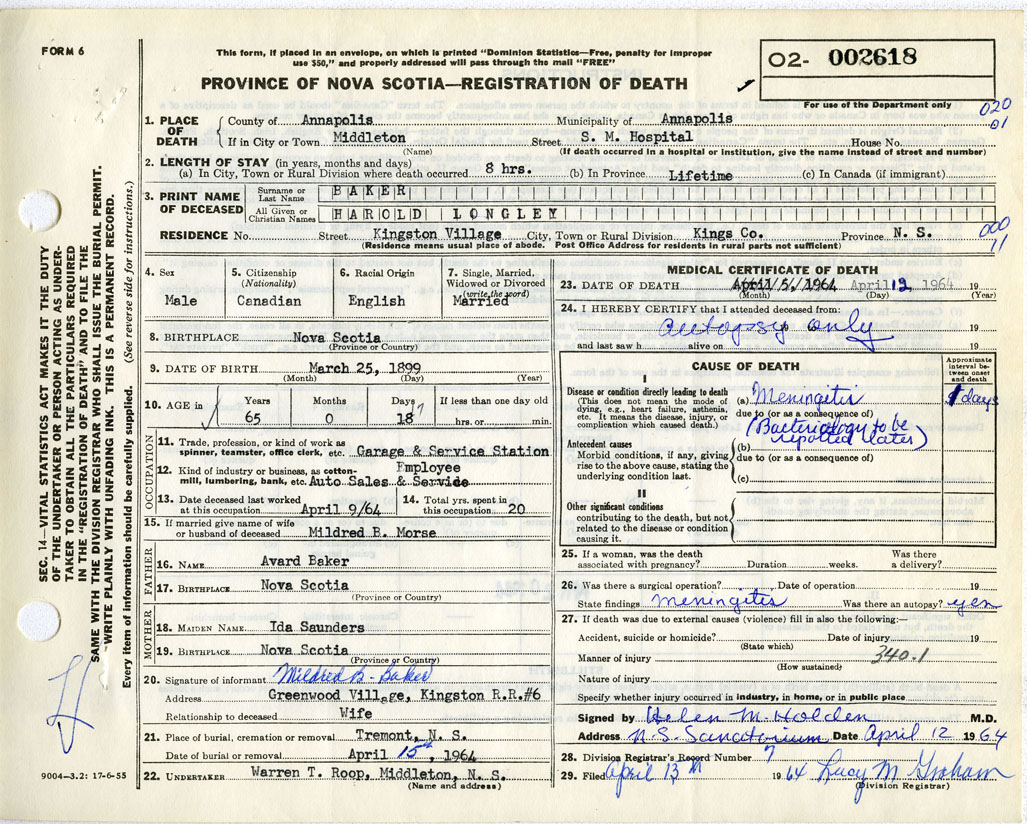 FORM 6
This form, if placed in an envelope, on which is printed "Dominion Statistics—Free, penalty for improper
use $50," and properly addressed will pass through the mail "FREE"
PROVINCE OF NOVA SCOTIA—REGISTRATION OF DEATH
O2- 002618
For use of the Department only
020
01
SEC. 14—VITAL STATISTICS ACT MAKES IT THE DUTY
OF THE UNDERTAKER OR PERSON ACTING AS UNDER-
TAKER TO OBTAIN ALL THE PARTICULARS REQUIRED
IN THE "REGISTRATION OF DEATH" AND TO FILE THE
SAME WITH THE DIVISION REGISTRAR WHO SHALL ISSUE THE BURIAL PERMIT.
WRITE PLAINLY WITH UNFADING INK. THIS IS A PERMANENT RECORD.
Every item of information should be carefully supplied. (See reverse side for instructions.)
1. PLACE OF DEATH
County of Annapolis Municipality of Annapolis
If in City or Town Middleton Street S. M. Hospital House No.
(Name) (If death occurred in a hospital or institution, give the name instead of street and number)
2. LENGTH OF STAY (in years, months and days)
(a) In City, Town or Rural Division where death occurred 8 hrs. (b) In Province Lifetime (c) In Canada (if immigrant)
3. PRINT NAME OF DECEASED
Surname or Last Name BAKER
All Given or Christian Names HAROLD LONGLEY
RESIDENCE No. Street Kingston Village City, Town or Rural Division Kings Co. Province N. S.
(Residence means usual place of abode. Post Office Address for residents in rural parts not sufficient)
000
11
4. Sex
Male
5. Citizenship
(Nationality)
Canadian
6. Racial Origin
English
7. Single, Married,
Widowed or Divorced
(write the word)
Married
8. BIRTHPLACE Nova Scotia
(Province or Country)
9. DATE OF BIRTH March 25, 1899
(Month) (Day) (Year)
10. AGE in Years Months Days If less than one day old
65 0 18 hrs. or min.
17
OCCUPATION
11. Trade, profession, or kind of work as
spinner, teamster, office clerk, etc. Garage & Service Station
Employee
12. Kind of industry or business, as cotton-
mill, lumbering, bank, etc. Auto Sales & Service
13. Date deceased last worked
at this occupation April 9/64
14. Total yrs. spent in
this occupation 20
15. If married give name of wife
or husband of deceased Mildred B. Morse
FATHER
16. NAME Avard Baker
17. BIRTHPLACE Nova Scotia
(Province or Country)
MOTHER
18. MAIDEN NAME Ida Saunders
19. BIRTHPLACE Nova Scotia
(Province or Country)
20. Signature of informant Mildred B. Baker
Address Greenwood Village, Kingston R.R.#6
Relationship to deceased Wife
21. Place of burial, cremation or removal Tremont, N. S.
Date of burial or removal April 15th, 1964
22. UNDERTAKER Warren T. Roop, Middleton, N. S.
(Name and address)
9004—3.2: 17-6-55
MEDICAL CERTIFICATE OF DEATH
23. DATE OF DEATH April 12 1964 19
(Month) (Day) (Year)
24. I HEREBY CERTIFY that I attended deceased from:
autopsy only 19
and last saw h alive on 19
CAUSE OF DEATH
Approximate
interval be-
tween onset
and death
I
Disease or condition directly leading to death
(This does not mean the mode of
dying, e.g., heart failure, asthenia,
etc. It means the disease, injury, or
complication which caused death.)
(a) Meningitis 1 days
due to (or as a consequence of)
(Bacteriology to be
reported later)
Antecedent causes
Morbid conditions, if any, giving
rise to the above cause, stating the
underlying condition last.
(b)
due to (or as a consequence of)
(c)
II
Other significant conditions
contributing to the death, but not
related to the disease or condition
causing it.
25. If a woman, was the death
associated with pregnancy? Duration weeks. Was there
a delivery?
26. Was there a surgical operation? Date of operation 19
State findings Meningitis Was there an autopsy? yes
27. If death was due to external causes (violence) fill in also the following:—
Accident, suicide or homicide? Date of injury 19
(State which)
Manner of injury 340.1
(How sustained)
Nature of injury
Specify whether injury occurred in industry, in home, or in public place
Signed by Helen M. Holden M.D.
Address N.S. Sanatorium Date April 12 1964
28. Division Registrar's Record Number 7
29. Filed April 13th 1964 Lucy M Graham
(Division Registrar)